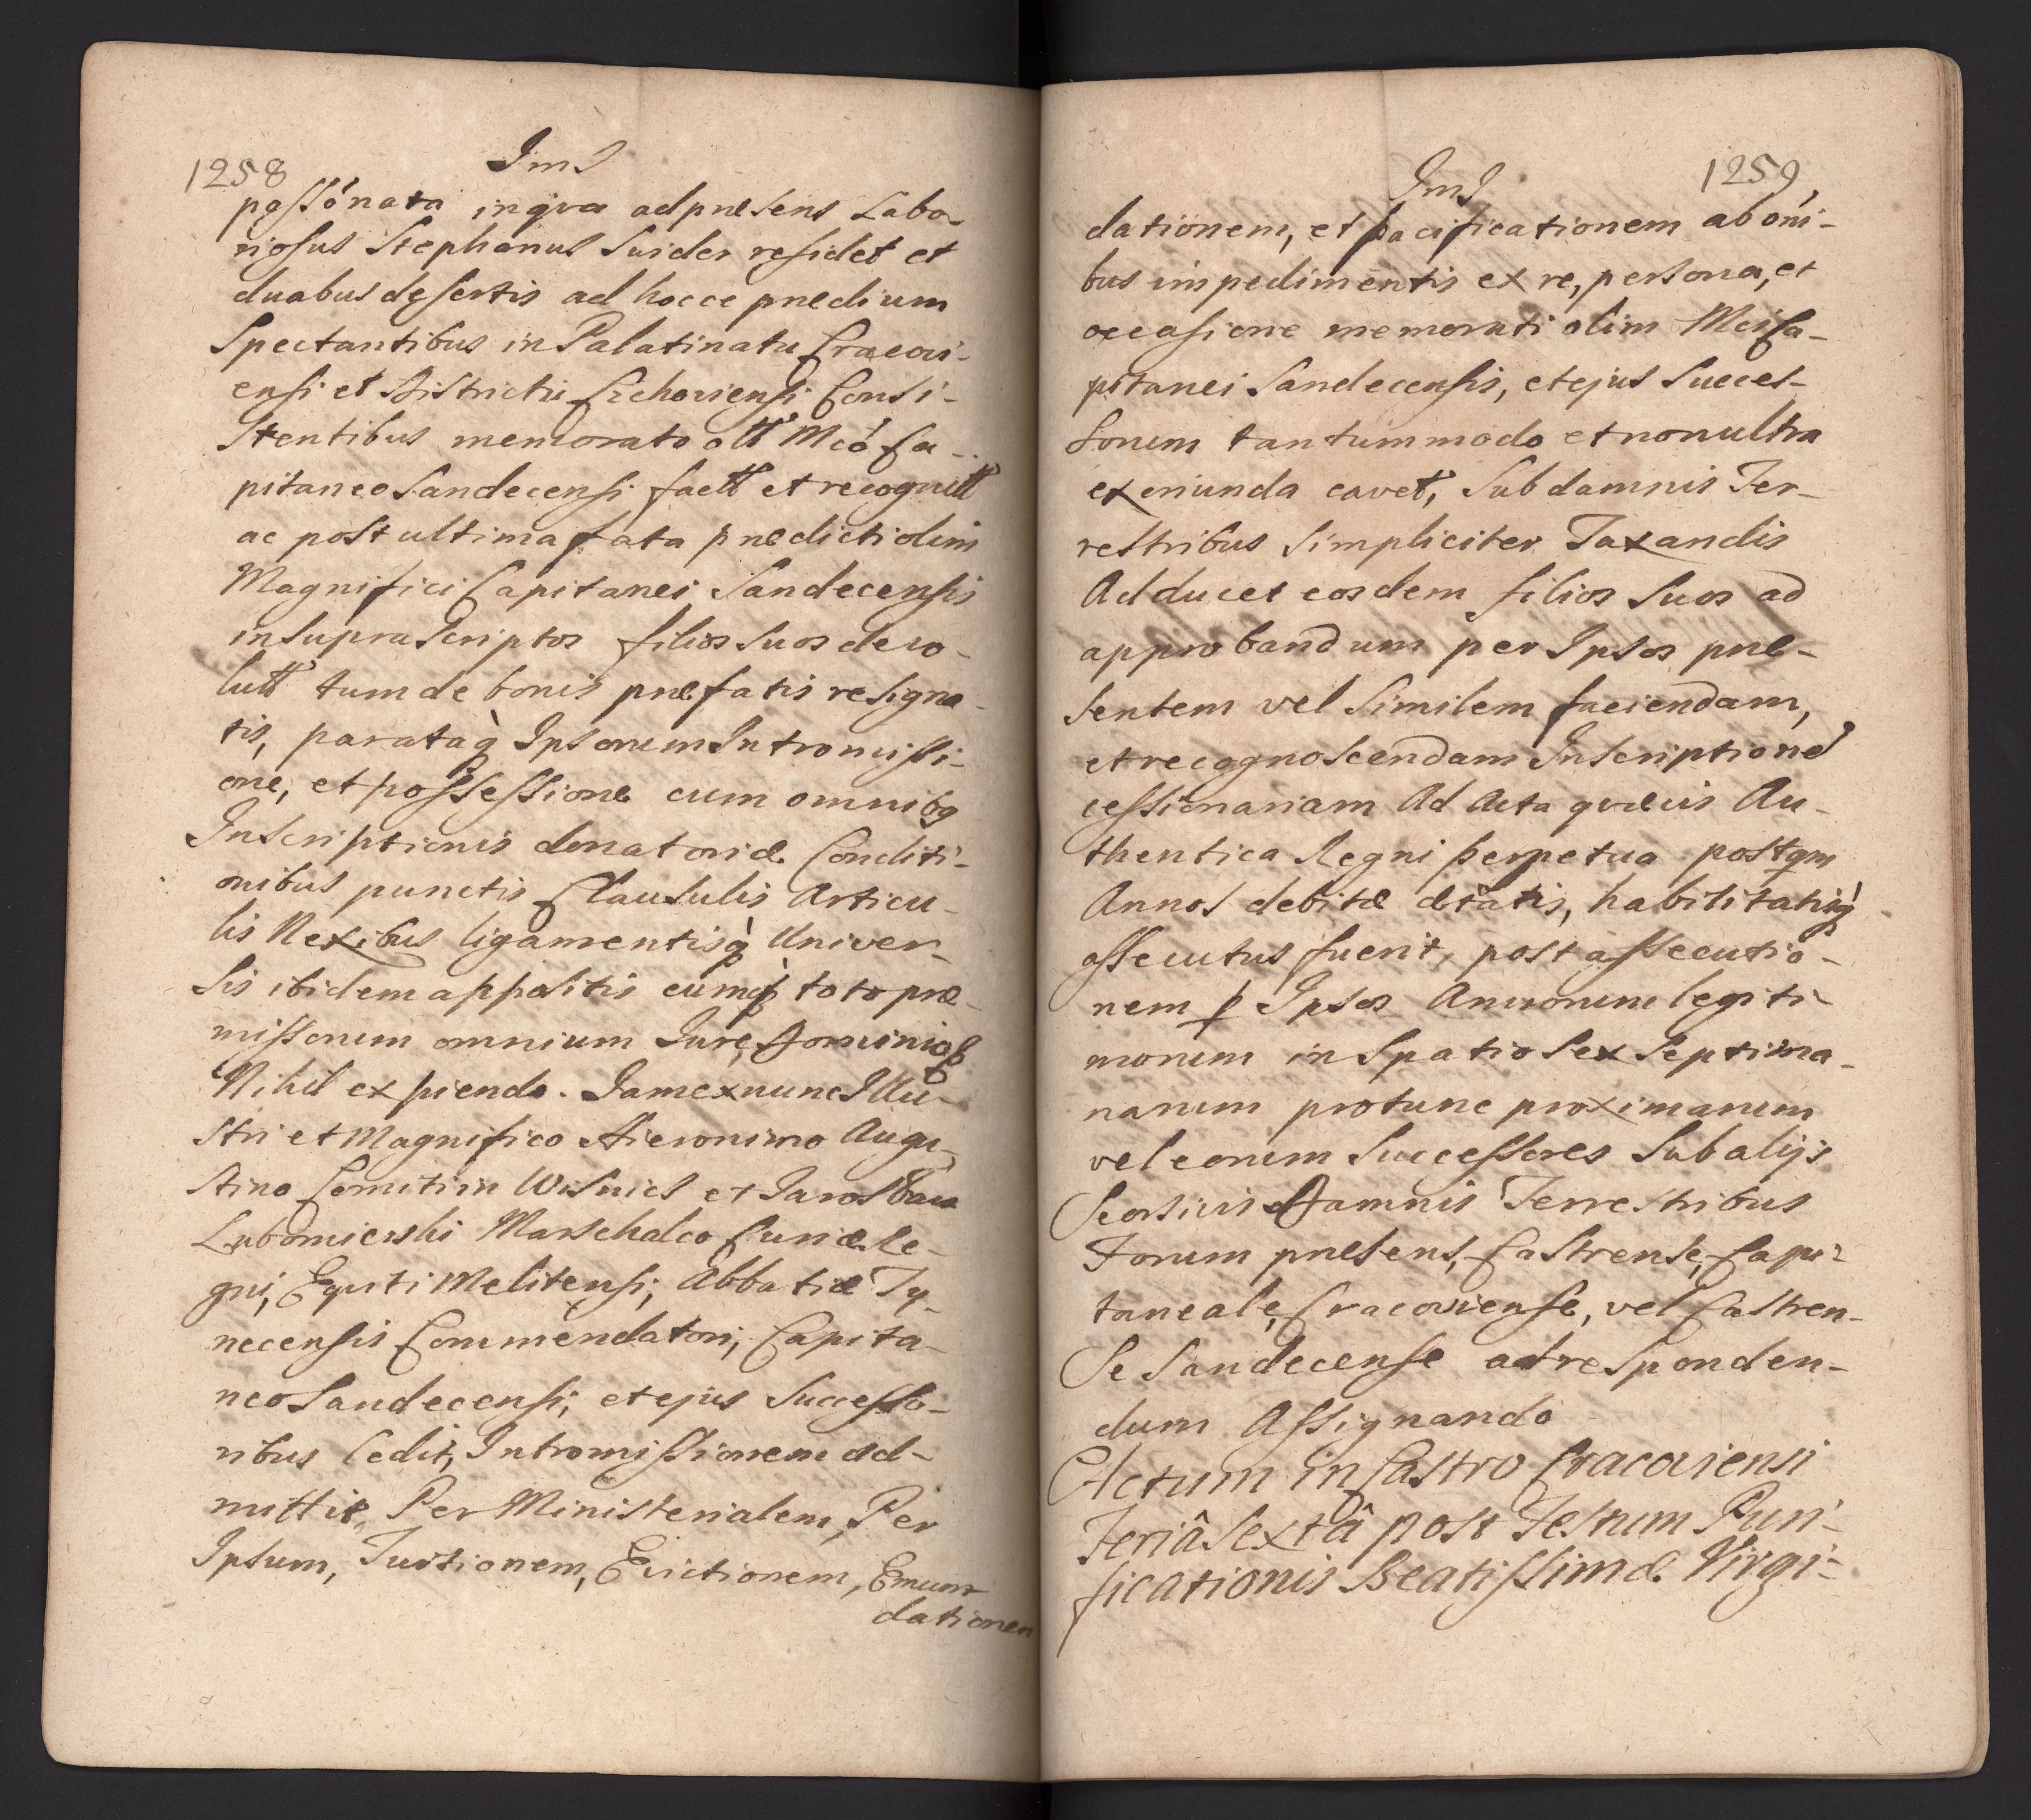 1258
ImS
possónata inqva ad præsens Labo-
riosus Stephanus Suider residet et
duabus desertis ad hocce prædium
Spectantibus in Palatinatu Cracovi-
ensi et Districtu Czchoviensi Consi-
stentibus memorato olt Mcó Ca-
pitaneo Sandecensi factt et recognitt
ac post ultima fata prædicti olim
Magnifici Capitanei Sandecensis
in Supra Scriptos filios Suos devo-
lutt tum de bonis præfatis resigna-
tis, parataq Ipsorum Intromissi-
one, et possessione cum omnibg
Inscriptionis donatoriæ Conditi-
onibus punctis Clausulis Articu-
lis Nexibus ligamentisq Univer-
sis ibidem appositis cumq toto præ-
missorum omnium Jure, Dominioq
Nihil excipiendo. Jam ex nunc Illu-
stri et Magnifico Hieronimo Augu-
stino Comiti in Wisnics et Jaroslau
Lubomierski Marschalco Curiæ Re-
gni, Equiti Melitensi, Abbatiæ Ty-
necensis Commendatori, Capita-
neo Sandecensi, et ejus Successo-
ribus Cedit, Intromissionem ad-
mittit, Per Ministerialem, Per
Ipsum, Tuitionem, Evictionem, Emun-
dationem
1259
ImS
dationem, et pacificationem ab omi-
bus impedimentis ex re, persona, et
occasione memorati olim Mci Ca-
pitanei Sandecensis, et ejus Succes-
sorum tantummodo et non ultra
exeriunda cavet, Sub damnis Ter-
restribus Simpliciter Taxandis
Adducet eosdem filios Suos ad
approbandum per Ipsos præ-
sentem vel Similem faciendam,
et recognoscendam Inscriptione
cessionariam Ad Acta qvævis Au-
thentica Regni perpetua postqm
Annos debitæ ætatis, habilitatisq
assecutus fuerit, post assecutio-
nem p Ipsos Annorum legiti-
morum in Spatio Sex Septima-
narum protunc proximarum
vel eorum Successores Sub alijs
Seorsivis Damnis Terrestribus
Forum præsens, Castrense, Capi-
taneale, Cracoviense, vel Castren-
se Sandecense ad responden-
dum Assignando
Actum in Castro Cracoviensi
Feriâ Sextâ post Festum Puri-
ficationis Beatissimæ Virgi-